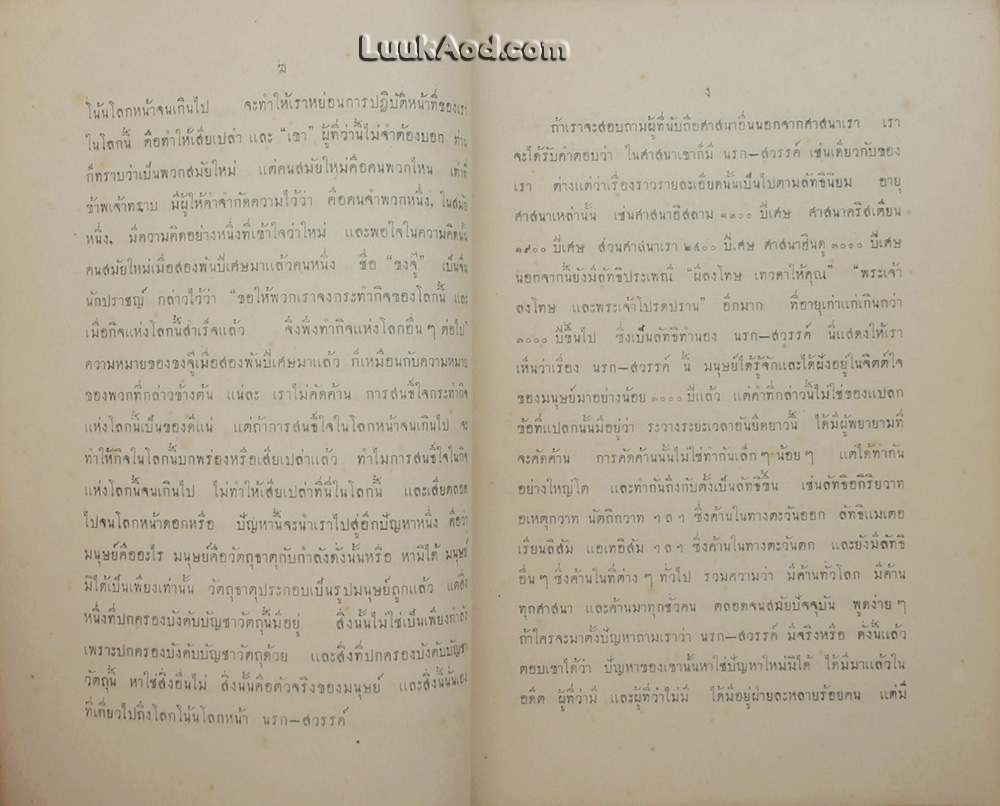 LuukAod.com
ฆ
โน้นโลกหน้าจนเกินไป จะทำให้เราหย่อนการปฏิบัติหน้าที่ของเรา
ในโลกนี้ คือทำให้เสียเปล่า และ “เขา” ผู้ที่ว่านี้ไม่จำต้องบอก ท่าน
ก็ทราบว่าเป็นพวกสมัยใหม่ แต่คนสมัยใหม่คือคนพวกไหน เท่าที่
ข้าพเจ้าทราบ มีผู้ให้คำจำกัดความไว้ว่า คือคนจำพวกหนึ่ง, ในสมัย
หนึ่ง, มีความคิดอย่างหนึ่งที่เข้าใจว่าใหม่ และพอใจในความคิดนั้น
คนสมัยใหม่เมื่อสองพันปีเศษมาแล้วคนหนึ่ง ชื่อ “ขงจู๊” เป็นจีน
นักปราชญ์ กล่าวไว้ว่า “ขอให้พวกเราจงกระทำกิจของโลกนี้ และ
เมื่อกิจแห่งโลกนี้สำเร็จแล้ว จึงพึ่งทำกิจแห่งโลกอื่น ๆ ต่อไป”
ความหมายของขงจู๊เมื่อสองพันปีเศษมาแล้ว ก็เหมือนกับความหมาย
ของพวกที่กล่าวข้างต้น แน่ละ เราไม่คัดค้าน การสนใจกระทำกิจ
แห่งโลกนี้เป็นของดีแน่ แต่ถ้าการสนใจในโลกหน้าจนเกินไป จะ
ทำให้กิจในโลกนี้บกพร่องหรือเสียเปล่าแล้ว ทำไมการสนใจในกิจ
แห่งโลกนี้จนเกินไป ไม่ทำให้เสียเปล่าที่นี่ในโลกนี้ และเสียตลอด
ไปจนโลกหน้าดอกหรือ ปัญหานี้จะนำเราไปสู่อีกปัญหาหนึ่ง คือว่า
มนุษย์คืออะไร มนุษย์คือวัตถุธาตุกับกำลังดั่งนั้นหรือ หามิได้ มนุษย์
มิได้เป็นเพียงเท่านั้น วัตถุธาตุประกอบเป็นรูปมนุษย์ถูกแล้ว แต่สิ่ง
หนึ่งที่ปกครองบังคับบัญชาวัตถุนี้มีอยู่ สิ่งนั้นไม่ใช่เป็นเพียงกำลัง
เพราะปกครองบังคับบัญชาวัตถุด้วย และสิ่งที่ปกครองบังคับบัญชา
วัตถุนี้ หาใช่สิ่งอื่นไม่ สิ่งนั้นคือตัวจริงของมนุษย์ และสิ่งนี้นั้นเอง
ที่เที่ยวไปถึงโลกโน้นโลกหน้า นรก—สวรรค์
ง
ถ้าเราจะสอบถามผู้ที่นับถือศาสนาอื่นนอกจากศาสนาเรา เรา
จะได้รับคำตอบว่า ในศาสนาเขาก็มี นรก—สวรรค์ เช่นเดียวกับของ
เรา ต่างแต่ว่าเรื่องราวรายละเอียดนั้นเป็นไปตามลัทธินิยม อายุ
ศาสนาเหล่านั้น เช่นศาสนาอิสลาม ๑๓๐๐ ปีเศษ ศาสนาคริสเตียน
๑๙๐๐ ปีเศษ ส่วนศาสนาเรา ๒๔๐๐ ปีเศษ ศาสนาฮินดู ๓๐๐๐ ปีเศษ
นอกจากนี้ยังมีลัทธิประเพณี “ผีลงโทษ เทวดาให้คุณ” “พระเจ้า
ลงโทษ และพระเจ้าโปรดปราน” อีกมาก ที่อายุเก่าแก่เกินกว่า
๓๐๐๐ ปีขึ้นไป ซึ่งเป็นลัทธิทำนอง นรก—สวรรค์ นี่แสดงให้เรา
เห็นว่าเรื่อง นรก—สวรรค์ นี้ มนุษย์ได้รู้จักและได้ฝังอยู่ในจิตต์ใจ
ของมนุษย์มาอย่างน้อย ๓๐๐๐ ปีแล้ว แต่คำที่กล่าวนี้ไม่ใช่ของแปลก
ข้อที่แปลกนั้นมีอยู่ว่า ระวางระยะเวลาอันยืดยาวนี้ ได้มีผู้พยายามที่
จะคัดค้าน การคัดค้านนั้นไม่ใช่ทำกันเล็ก ๆ น้อย ๆ แต่ได้ทำกัน
อย่างใหญ่โต และทำกันถึงกับตั้งเป็นลัทธิขึ้น เช่นลัทธิอกิริยวาท
อเหตุกวาท นัตถิกวาท ฯลฯ ซึ่งค้านในทางตะวันออก ลัทธิแมเตอ
เรียนลิสม์ แอเทอิสม์ ฯลฯ ซึ่งค้านในทางตะวันตก และยังมีลัทธิ
อื่น ๆ ซึ่งค้านในที่ต่าง ๆ ทั่วไป รวมความว่า มีค้านทั่วโลก มีค้าน
ทุกศาสนา และค้านมาทุกชั่วคน ตลอดจนสมัยปัจจุบัน พูดง่าย ๆ
ถ้าใครจะมาตั้งปัญหาถามเราว่า นรก—สวรรค์ มีจริงหรือ ดั่งนี้แล้ว
ตอบเขาได้ว่า ปัญหาของเขานั้นหาใช่ปัญหาใหม่มิได้ ได้มีมาแล้วใน
อดีต ผู้ที่ว่ามี และผู้ที่ว่าไม่มี ได้มีอยู่ฝ่ายละหลายร้อยคน แต่มี